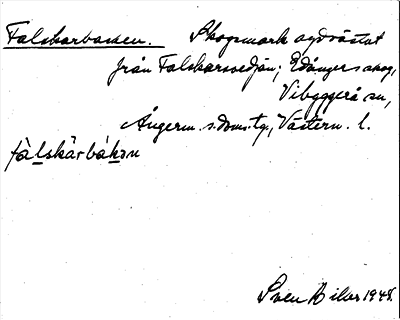 Falskarbacken. Skogsmark sydväst
från Falskarsvedjan; Edånger skog,
Vibyggerå sn,
Ångerm. s. doms. tg., Västern. l.
fàlskàrbák̄ən
Sven Biller 1948.